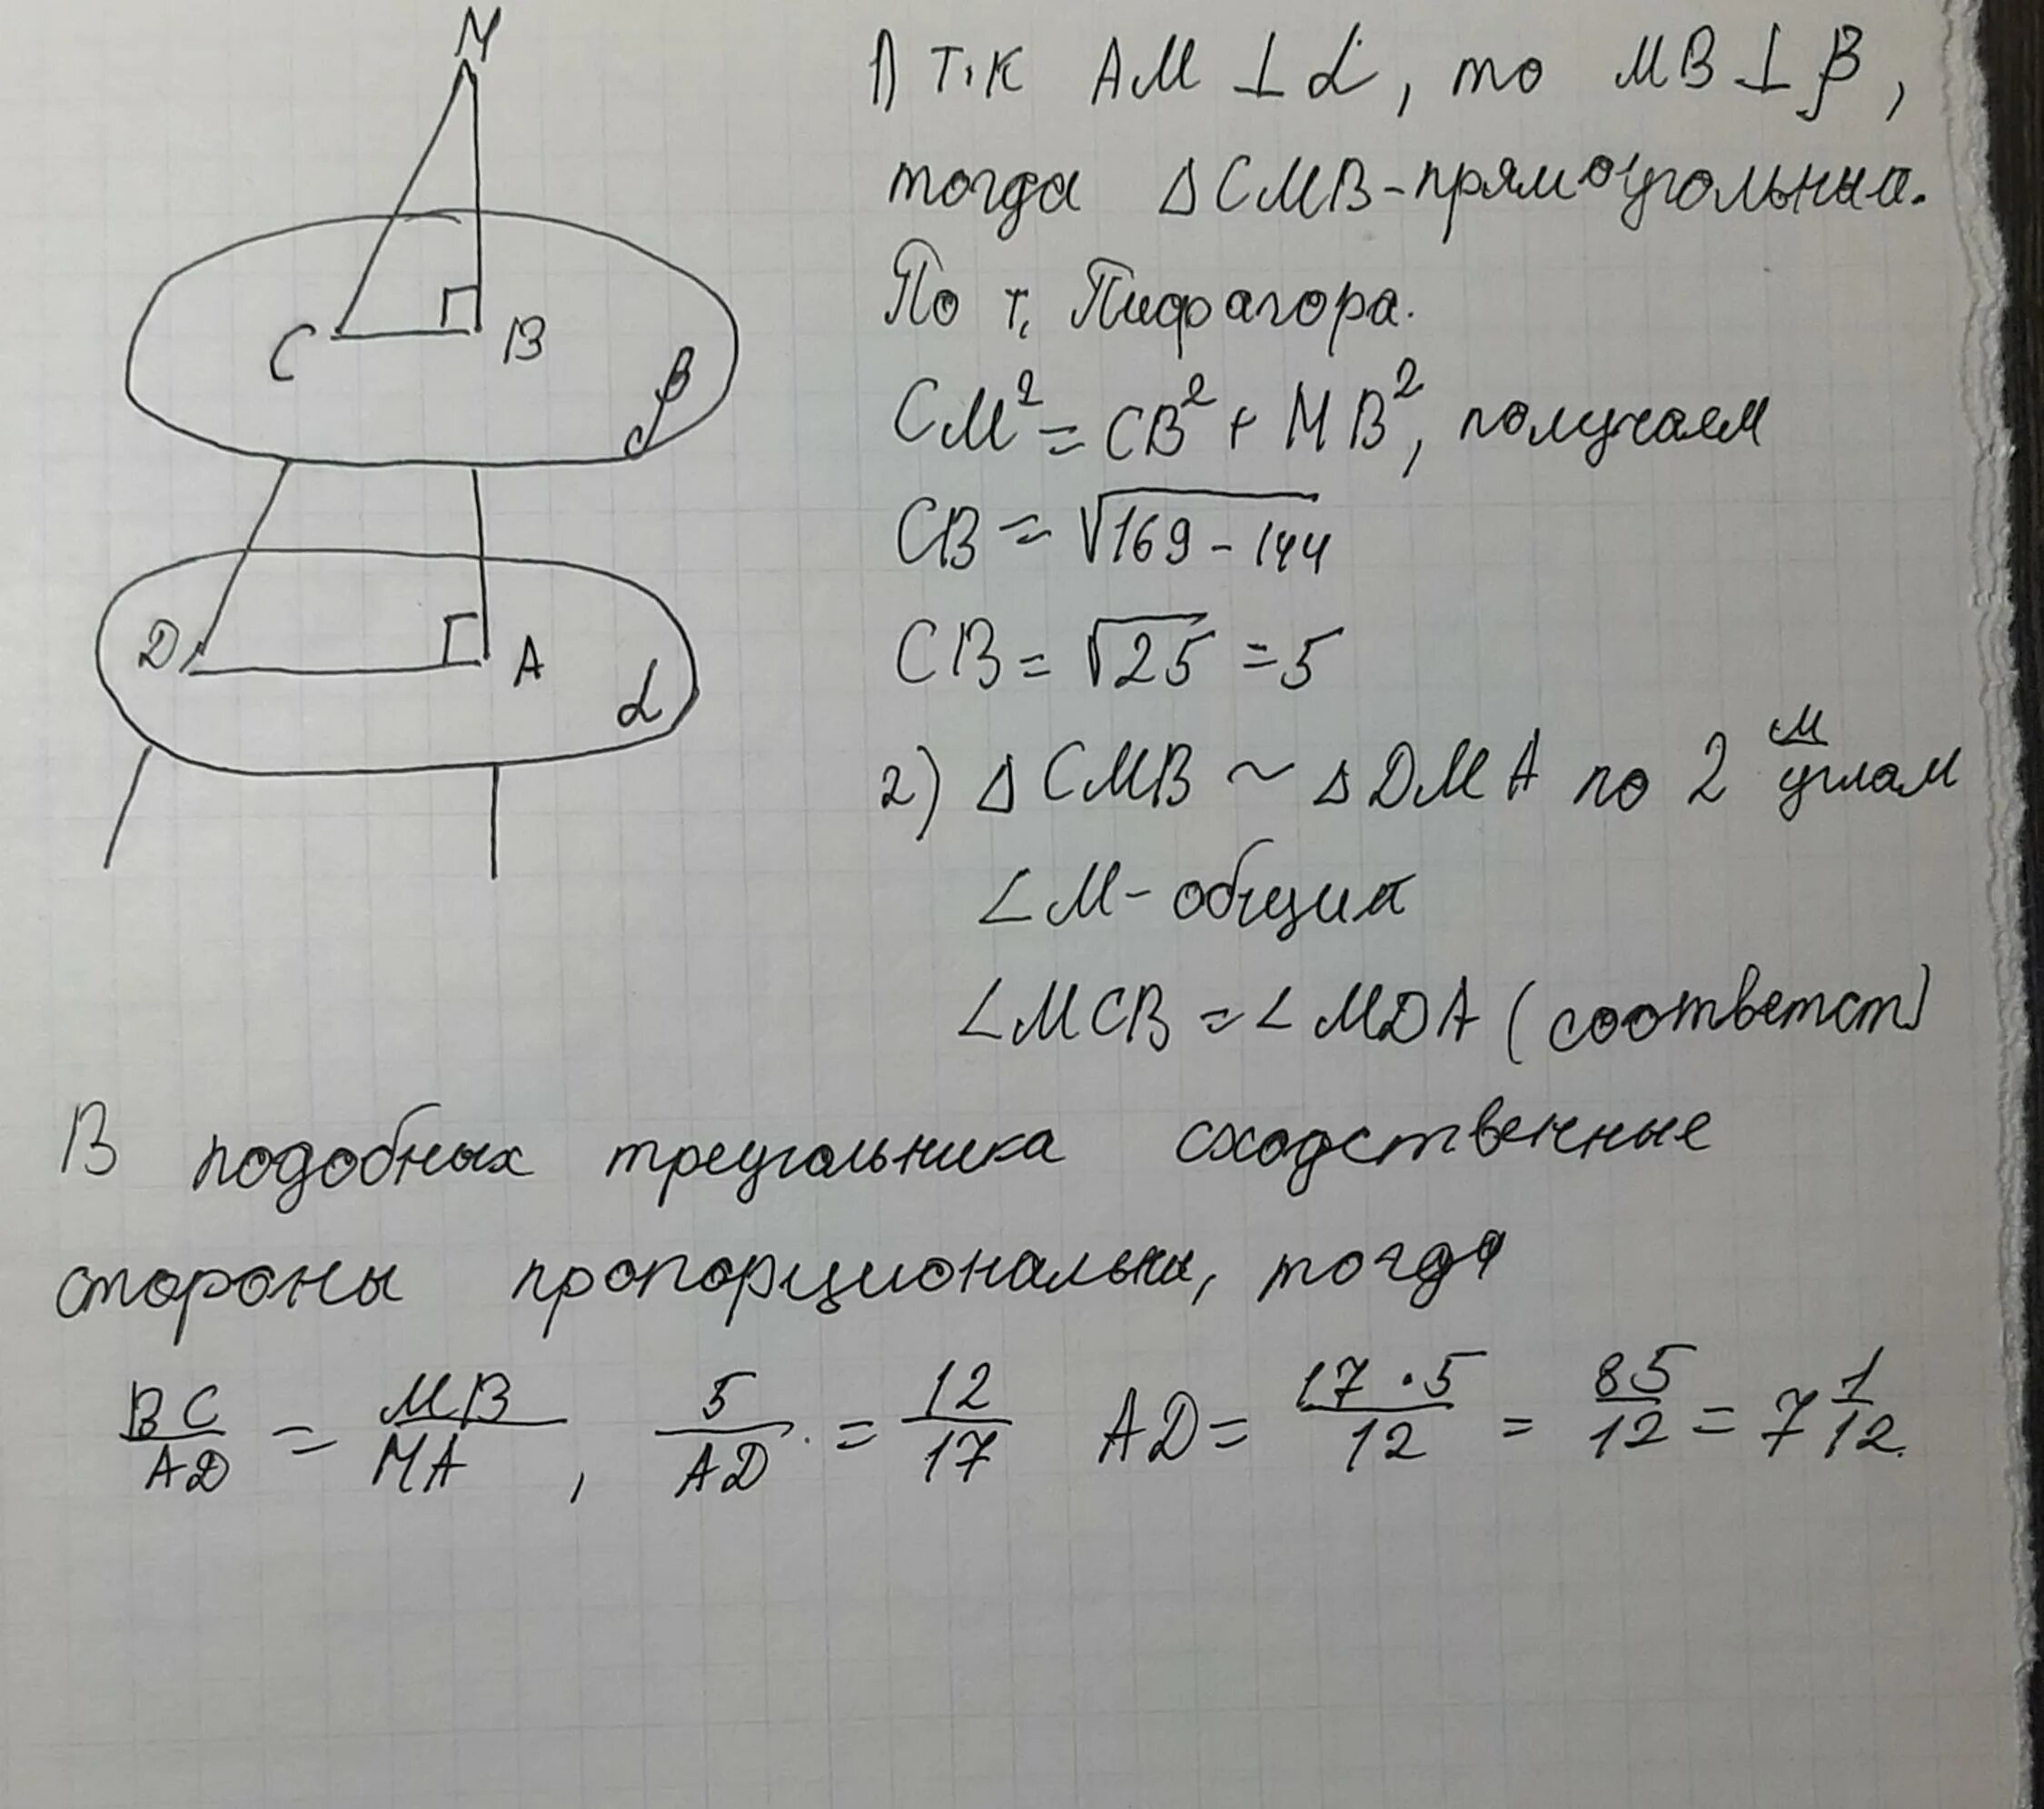 M
C
B
β
D
A
α
1) т.к AM ⊥ α, то MB ⊥ β,
тогда △CMB - прямоугольный.
По т. Пифагора.
CM² = CB² + MB², получаем
CB = √169 - 144
CB = √25 = 5
2) △CMB ~ △DMA по 2 м углам
∠M - общий
∠MCB = ∠MDA (соответст)
В подобных треугольника сходственные
стороны пропорциональны, тогда
BC/AD = MB/MA, 5/AD = 12/17 AD = 17·5/12 = 85/12 = 7 1/12.